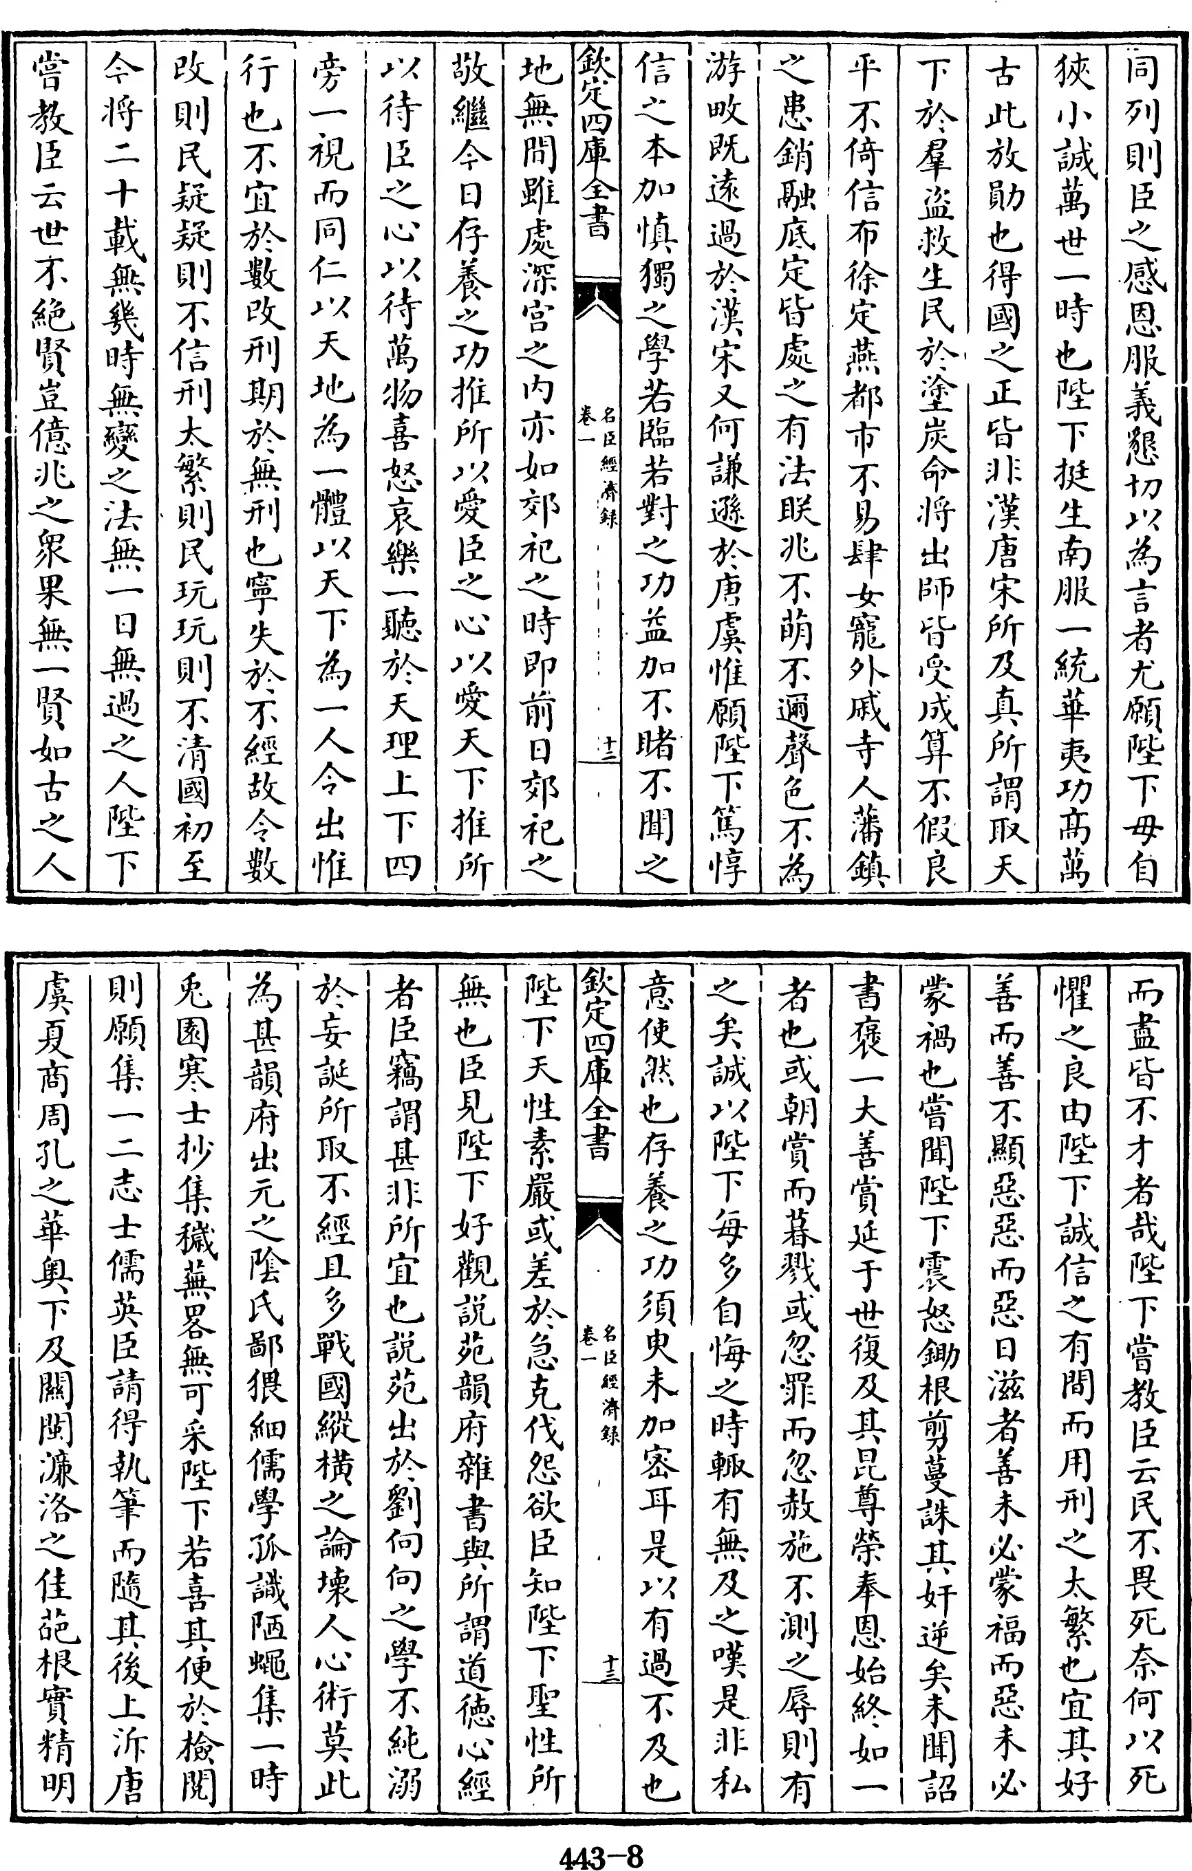 同列則臣之感恩服義懇切以為言者尤願陛下毋自
狹小誠萬世一時也陛下挺生南服一統華夷功髙萬
古此放勛也得國之正皆非漢唐宋所及真所謂取天
下於羣盜救生民於塗炭命將出師皆受成算不假良
平不倚信布徐定燕都市不易肆女寵外戚寺人藩鎮
之患銷融底定皆處之有法眹兆不萌不邇聲色不為
游畋既遠過於漢宋又何謙遜於唐虞惟願陛下篤惇
信之本加慎獨之學若臨若對之功益加不睹不聞之
欽定四庫全書
名臣經濟録
卷一
十二
地無間雖處深宫之内亦如郊祀之時即前日郊祀之
敬繼今日存養之功推所以愛臣之心以愛天下推所
以待臣之心以待萬物喜怒哀樂一聽於天理上下四
旁一視而同仁以天地為一體以天下為一人令出惟
行也不宜於數改刑期於無刑也寧失於不經故令數
改則民疑疑則不信刑太繁則民玩玩則不清國初至
今將二十載無幾時無變之法無一日無過之人陛下
嘗教臣云世不絶賢豈億兆之衆果無一賢如古之人
而盡皆不才者哉陛下嘗教臣云民不畏死奈何以死
懼之良由陛下誠信之有間而用刑之太繁也宜其好
善而善不顯惡惡而惡日滋者善未必蒙福而惡未必
蒙禍也嘗聞陛下震怒鋤根剪蔓誅其奸逆矣未聞詔
書褒一大善賞延于世復及其昆尊榮奉恩始終如一
者也或朝賞而暮戮或忽罪而忽赦施不測之辱則有
之矣誠以陛下每多自悔之時輙有無及之嘆是非私
意使然也存養之功須臾未加密耳是以有過不及也
欽定四庫全書
名臣經濟録
卷一
十三
陛下天性素嚴或差於急克伐怨欲臣知陛下聖性所
無也臣見陛下好觀説苑韻府雜書與所謂道徳心經
者臣竊謂甚非所宜也説苑出於劉向向之學不純溺
於妄誕所取不經且多戰國縱横之論壞人心術莫此
為甚韻府出元之隂氏鄙猥細儒學孤識陋蠅集一時
兎園寒士抄集穢蕪畧無可采陛下若喜其便於檢閲
則願集一二志士儒英臣請得執筆而隨其後上泝唐
虞夏商周孔之華奥下及關閩濂洛之佳葩根實精明
443-8